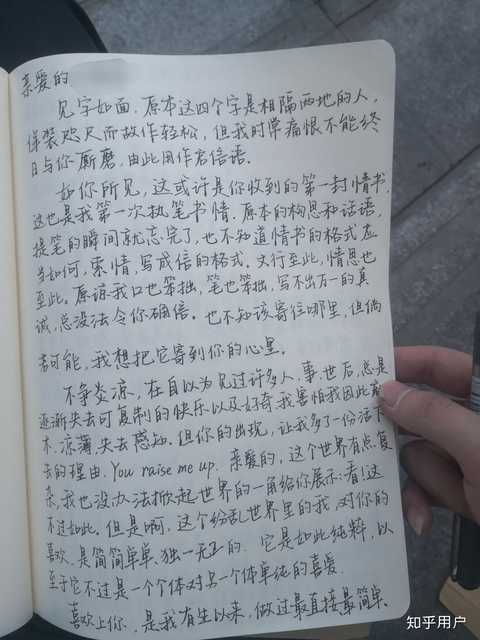 亲爱的
见字如面。原本这四个字是相隔两地的人,
佯装咫尺而故作轻松,但我时常痛恨不能终
日与你厮磨,由此用作启信语。
如你所见,这或许是你收到的第一封情书,
这也是我第一次执笔书情。原本的构思和话语,
提笔的瞬间就忘完了,也不知道情书的格式应
当如何,索情,写成信的格式。文行至此,情思也
至此。原谅我口也笨拙,笔也笨拙,写不出万一的真
诚,总没法令你确信。也不知该寄往哪里,但倘
若可能,我想把它寄到你的心里。
不争炎凉,在自以为见过许多人、事、世后,总是
逐渐失去可复制的快乐以及好奇。我害怕我因此麻
木、凉薄、失去感知。但你的出现,让我多了一份活下
去的理由。You raise me up. 亲爱的,这个世界有点复
杂,我也没办法掀起世界的一角给你展示:看!这
不过如此。但是啊,这个纷乱世界里的我,对你的
喜欢,是简简单单、独一无二的。它是如此纯粹,以
至于它不过是一个个体对另一个体单纯的喜爱。
喜欢上你,是我有生以来,做过最直接最简单
知乎用户